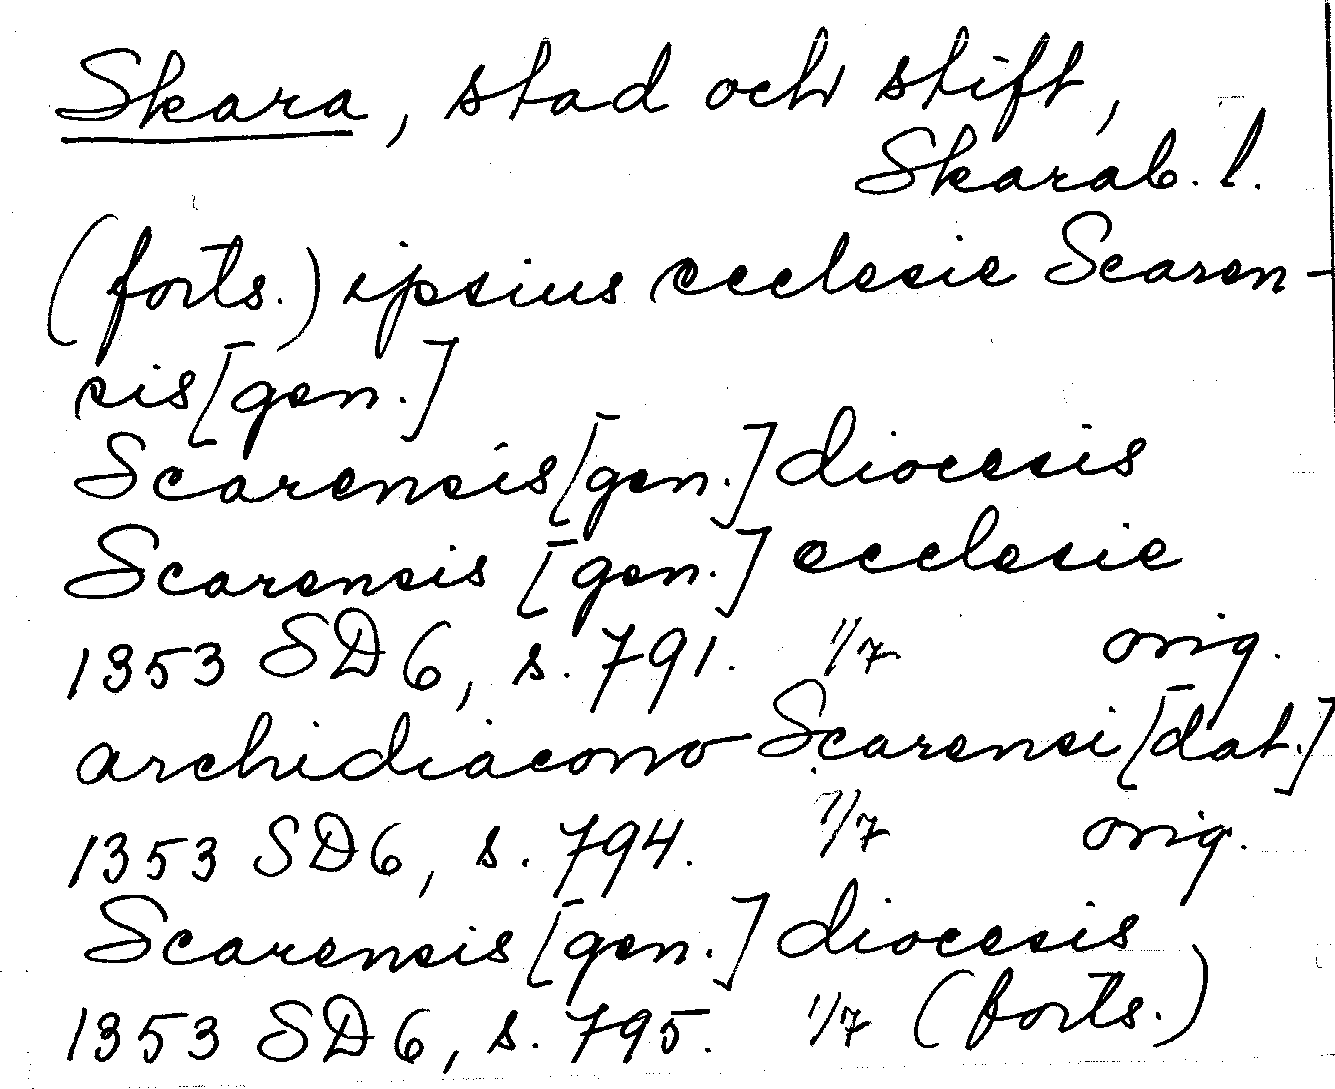 Skara, stad och stift,
Skarab. l.
(forts.) ipsius ecclesie Scaren-
sis [gen.]
Scarensis [gen.] diocesis
Scarensis [gen.] ecclesie
1353 SD 6, s. 791. 1/7 orig.
archidiacono Scarensi [dat.]
1353 SD 6, s. 794. 7/7 orig.
Scarensis [gen.] diocesis
1353 SD 6, s. 795. 1/7 (forts.)